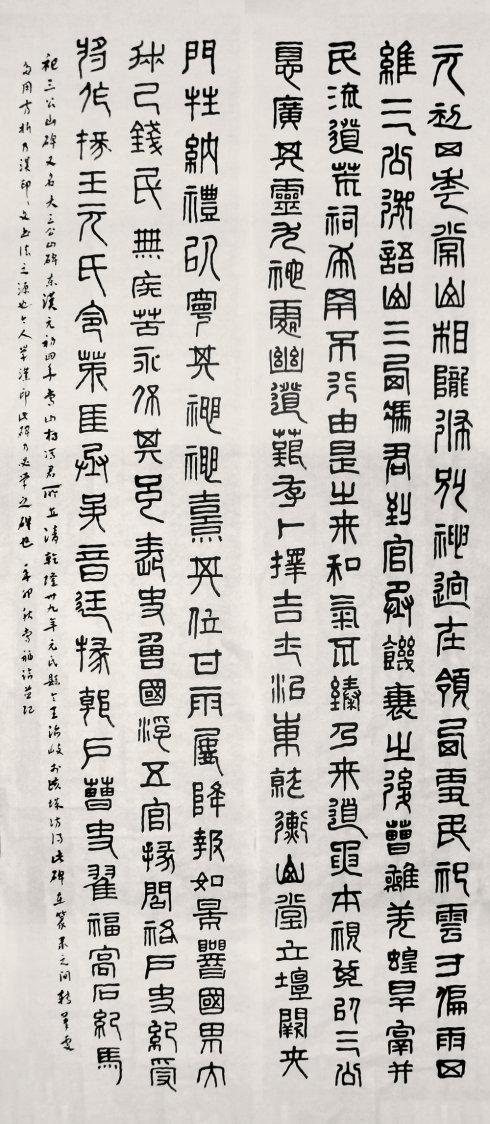 元初四年常山相隴條別神迥在領西吏民祀雲寸偏雨四
維三公御語山三西馮君到官承饑衰之後曹離羌蝗旱鬲并
民流道荒祠希罕不行由是之來和氣不臻乃來道要本視以三公
悳廣其靈尤神處幽道艱存卜擇吉土治東就衡山堂立壇闕夾
門牲納禮以寧其神神熹其位甘雨屢降報如景響國界大
錢民無疾苦永保其長史魯國浮五官掾閻祐戶史紀受
將作掾王元氏令茅匡丞吳音廷掾郭戶曹史翟福高石紀焉
祀三公山碑又名大三公山碑東漢元初四年常山相馮君所立清乾隆卅九年元氏縣令王治岐於城訪得此碑在篆隸之間轉筆處
多用方折乃漢印文書法之源也今人學漢印此碑乃必學之碑也 辛卯秋常福記